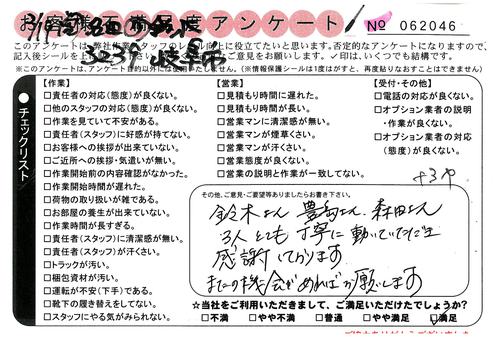 お客様満足度アンケート
№ 062046
3239 岐阜市
このアンケートは、弊社作業スタッフのレベル向上に役立てたいと思います。否定的なアンケートになりますので、
記入後シールを上
ご意見をお願いします。✓印は、いくつでも結構です。
※このアンケートは、アンケート目的以外には使用いたしません。(※情報保護シールは1度はがすと、再度貼りなおすことはできません)
チェックリスト
【作業】
□責任者の対応(態度)が良くない。
□他のスタッフの対応(態度)が良くない。
□作業を見ていて不安がある。
□責任者(スタッフ)に好感が持てない。
□お客様への挨拶が出来ていない。
□ご近所への挨拶・気遣いが無い。
□作業開始前の内容確認がなかった。
□作業開始時間が遅れた。
□荷物の取り扱いが雑である。
□お部屋の養生が出来ていない。
□作業時間が長すぎる。
□責任者(スタッフ)に清潔感が無い。
□責任者(スタッフ)が汗くさい。
□トラックが汚い。
□梱包資材が汚い。
□運転が不安(下手)である。
□靴下の履き替えをしてない。
□スタッフにやる気がみられない。
【営業】
□見積もり時間に遅れた。
□見積もり時間が長い。
□営業マンに清潔感が無い。
□営業マンが煙草くさい。
□営業マンが汗くさい。
□営業態度が良くない。
□営業の説明と作業が一致してない。
【受付・その他】
□電話の対応が良くない。
□オプション業者の説明
・作業が良くない。
□オプション業者の対応
(態度)が良くない。
その他、ご意見・ご要望等ありましたらお書き下さい。
鈴木さん 豊島さん 森田さん
3人とても丁寧に動いていただき
感謝しております
またの機会があればお願いします
☆当社をご利用いただきまして、ご満足いただけたでしょうか?
□不満 □やや不満 □普通 □やや満足 ☑満足
ご協力ありがとうございました